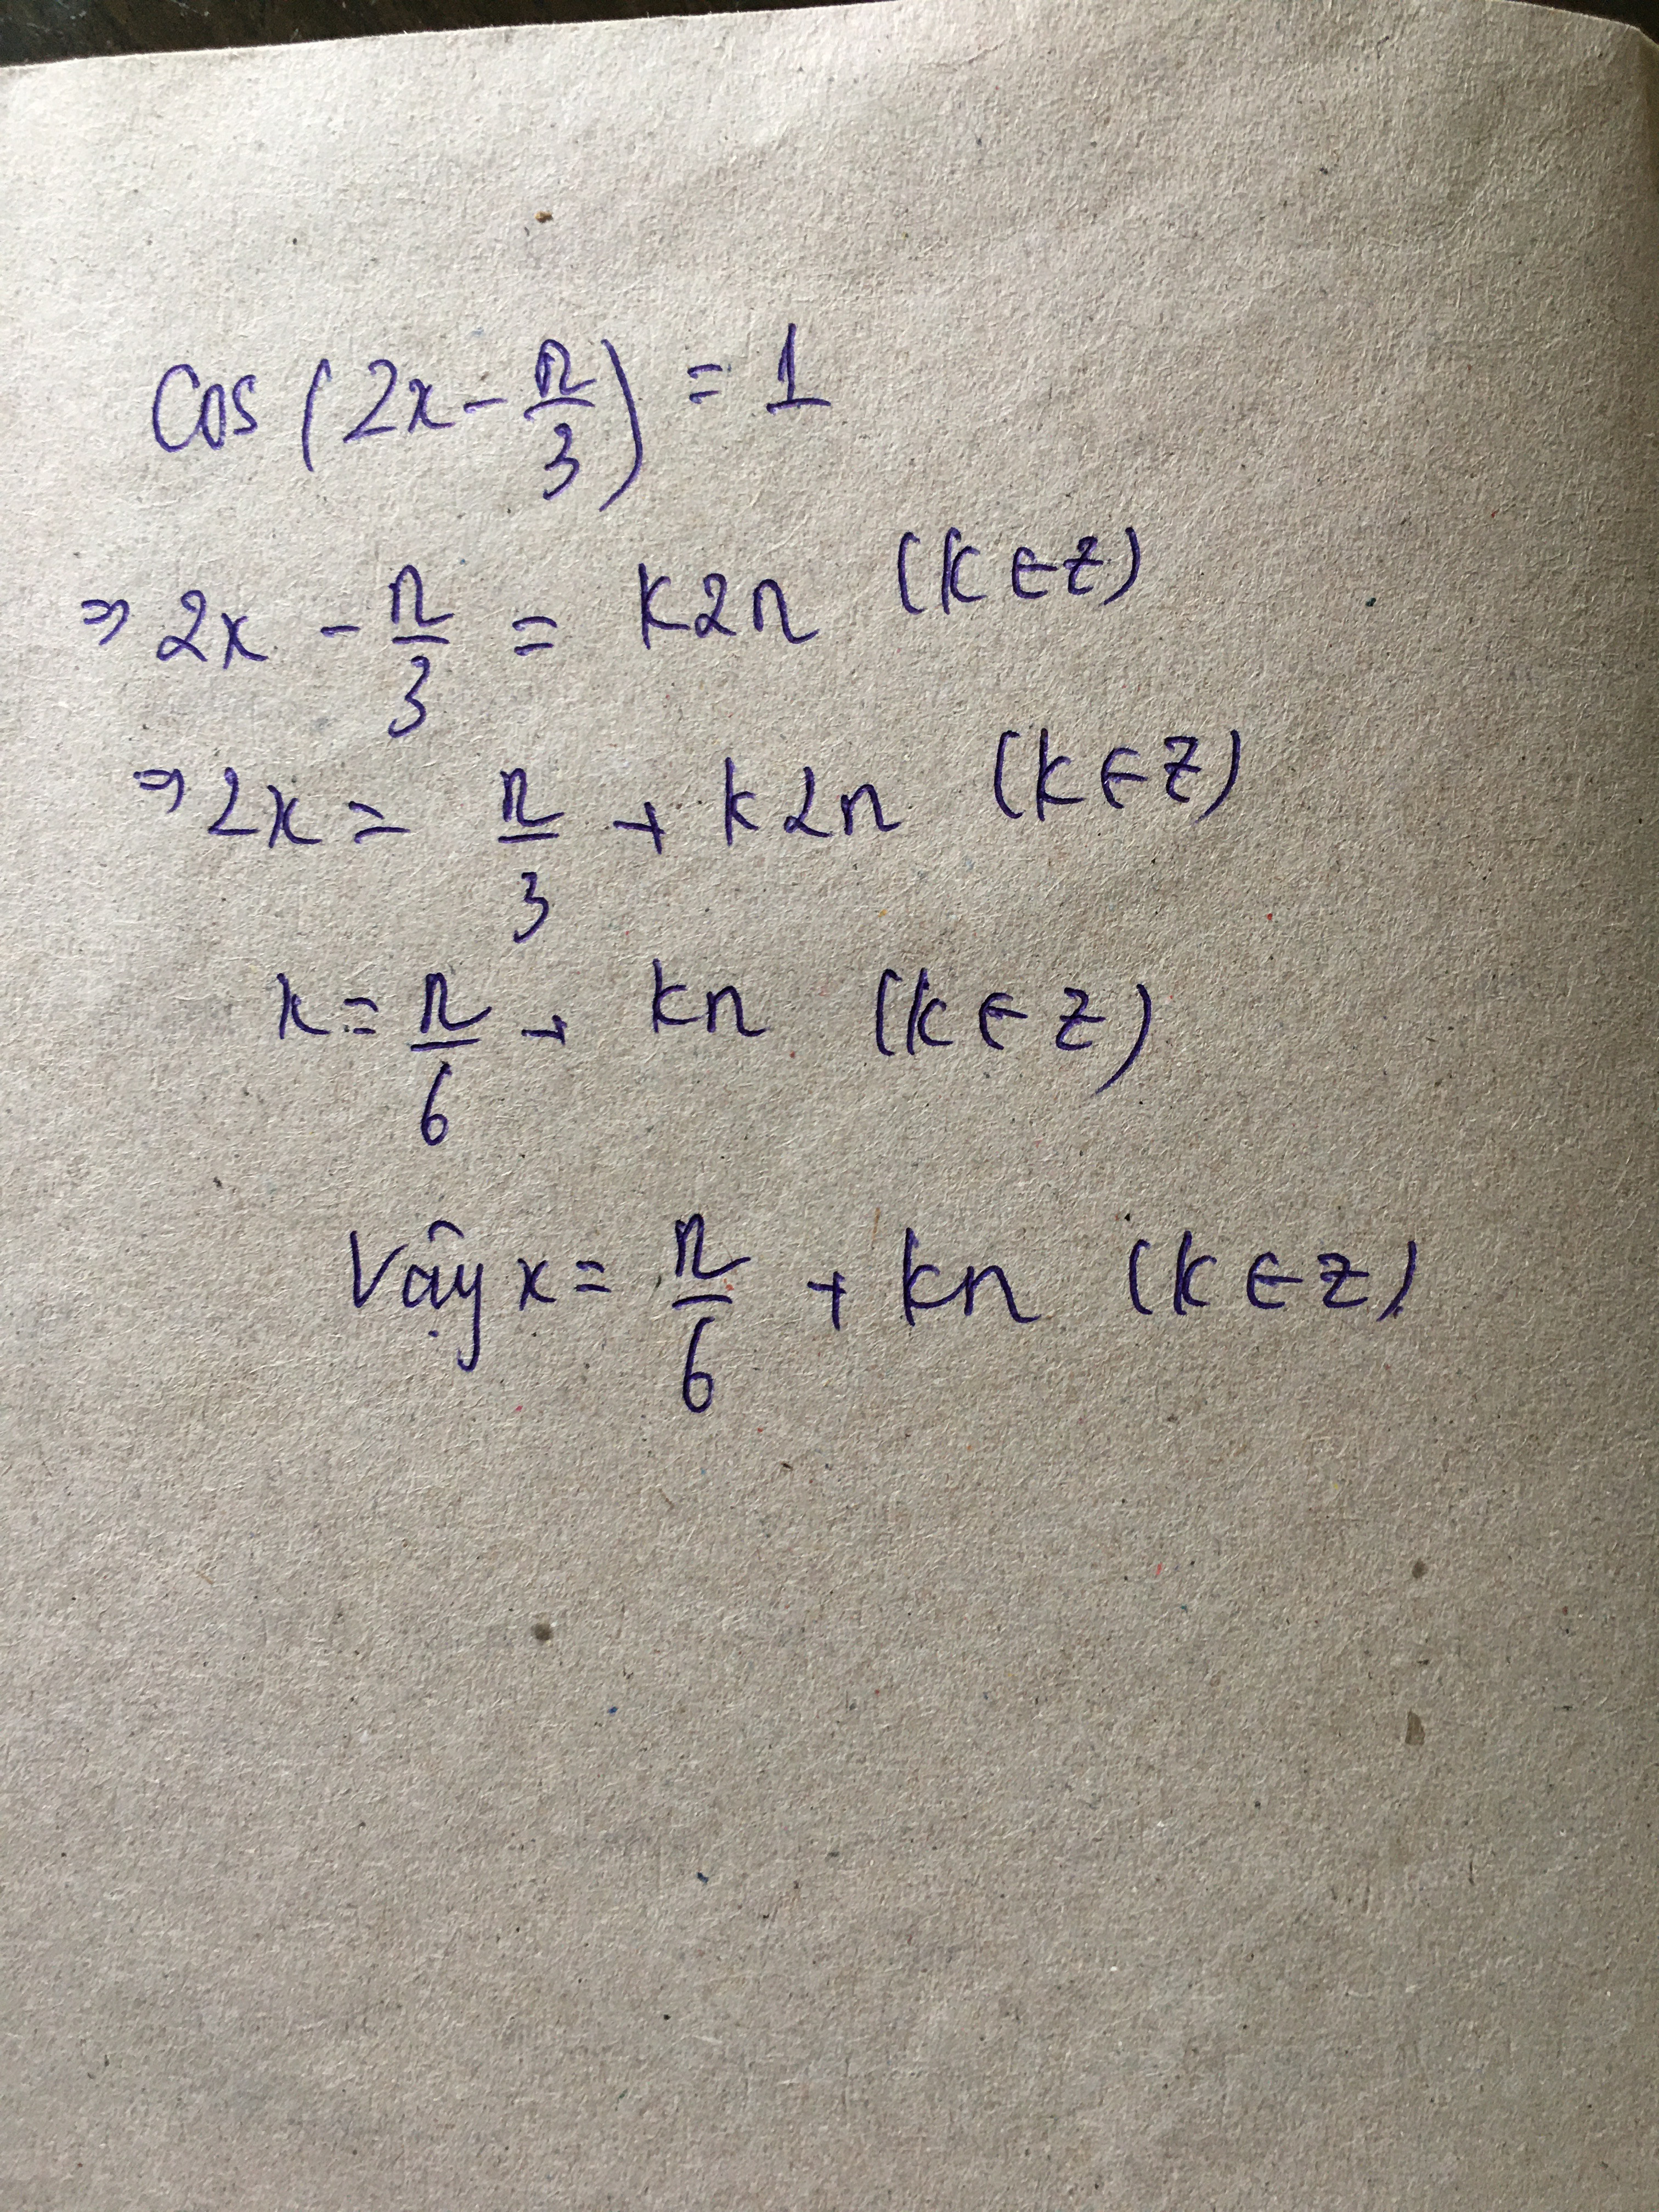 Cos (2x - π/3) = 1
⇒ 2x - π/3 = k2π (k ∈ Z)
⇒ 2x = π/3 + k2π (k ∈ Z)
x = π/6 + kπ (k ∈ Z)
Vậy x = π/6 + kπ (k ∈ Z)